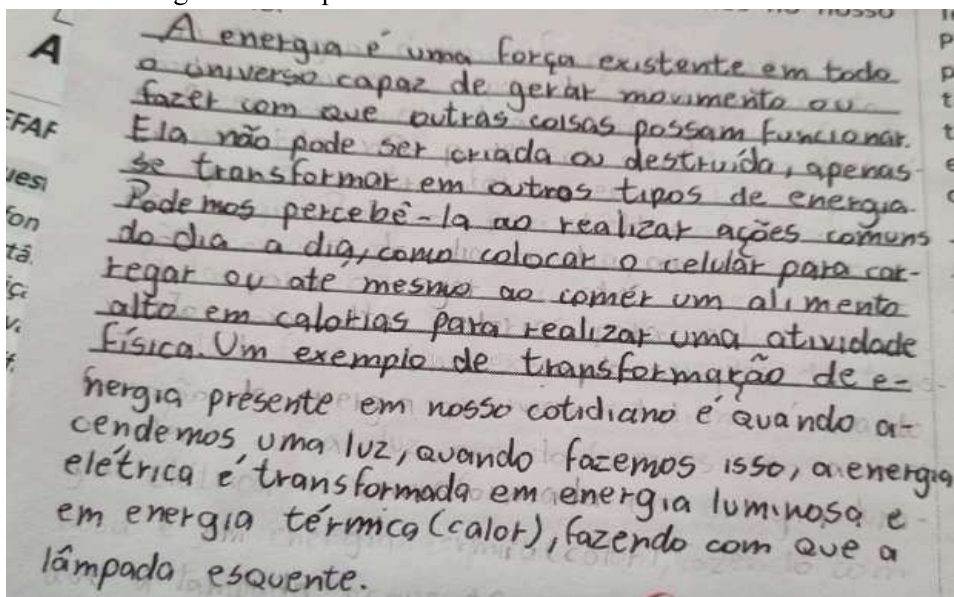 A energia é uma força existente em todo
o universo capaz de gerar movimento ou
fazer com que outras coisas possam funcionar.
Ela não pode ser criada ou destruída, apenas
se transformar em outros tipos de energia.
Podemos percebê-la ao realizar ações comuns
do dia a dia, como colocar o celular para car-
regar ou até mesmo ao comer um alimento
alto em calorias para realizar uma atividade
física. Um exemplo de transformação de e-
nergia presente em nosso cotidiano é quando a-
cendemos uma luz, quando fazemos isso, a energia
elétrica é transformada em energia luminosa e
em energia térmica (calor), fazendo com que a
lâmpada esquente.